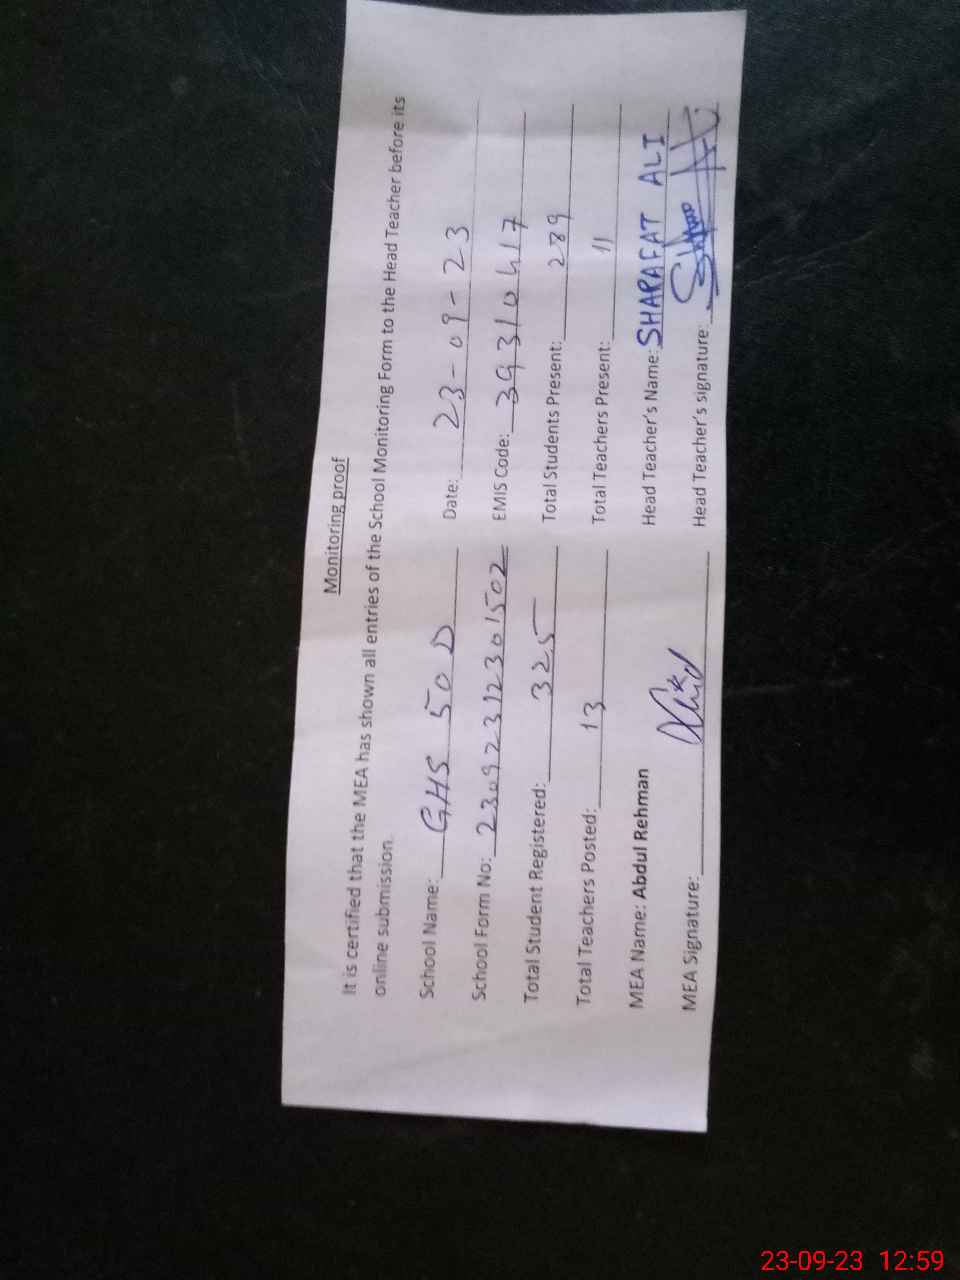 Monitoring proof
It is certified that the MEA has shown all entries of the School Monitoring Form to the Head Teacher before its
online submission.
School Name: GHS 50 D Date: 23-09-23
School Form No: 23092312301502 EMIS Code: 39310417
Total Student Registered: 325 Total Students Present: 289
Total Teachers Posted: 13 Total Teachers Present: 11
MEA Name: Abdul Rehman Head Teacher's Name: SHARAFAT ALI
MEA Signature: Head Teacher's signature:
23-09-23 12:59